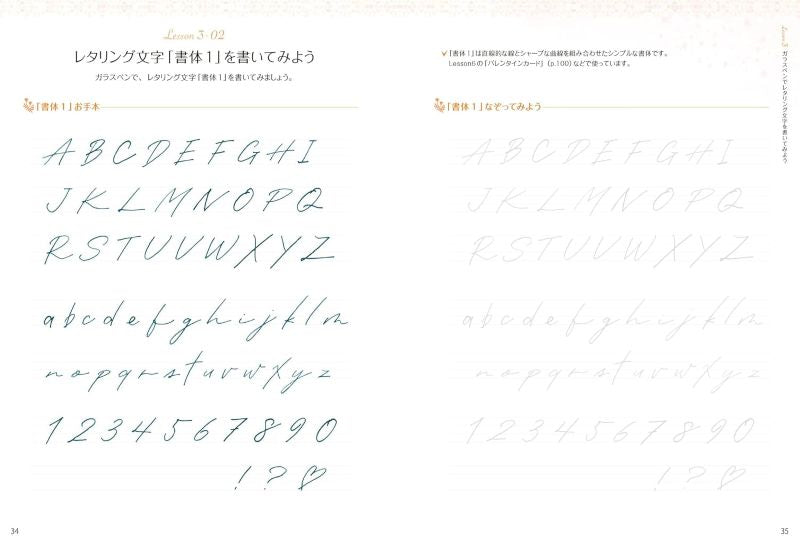 Lesson 3-02
レタリング文字「書体1」を書いてみよう
ガラスペンで、レタリング文字「書体1」を書いてみましょう。
「書体1」お手本
A B C D E F G H I
J K L M N O P Q
R S T U V W X Y Z
a b c d e f g h i j k l m
n o p q r s t u v w x y z
1 2 3 4 5 6 7 8 9 0
! ? ♡
34
「書体1」は直線的な線とシャープな曲線を組み合わせたシンプルな書体です。
Lesson6の「バレンタインカード」(p.100)などで使っています。
「書体1」なぞってみよう
A B C D E F G H I
J K L M N O P Q
R S T U V W X Y Z
a b c d e f g h i j k l m
n o p q r s t u v w x y z
1 2 3 4 5 6 7 8 9 0
! ? ♡
Lesson 3 ガラスペンでレタリング文字を書いてみよう
35